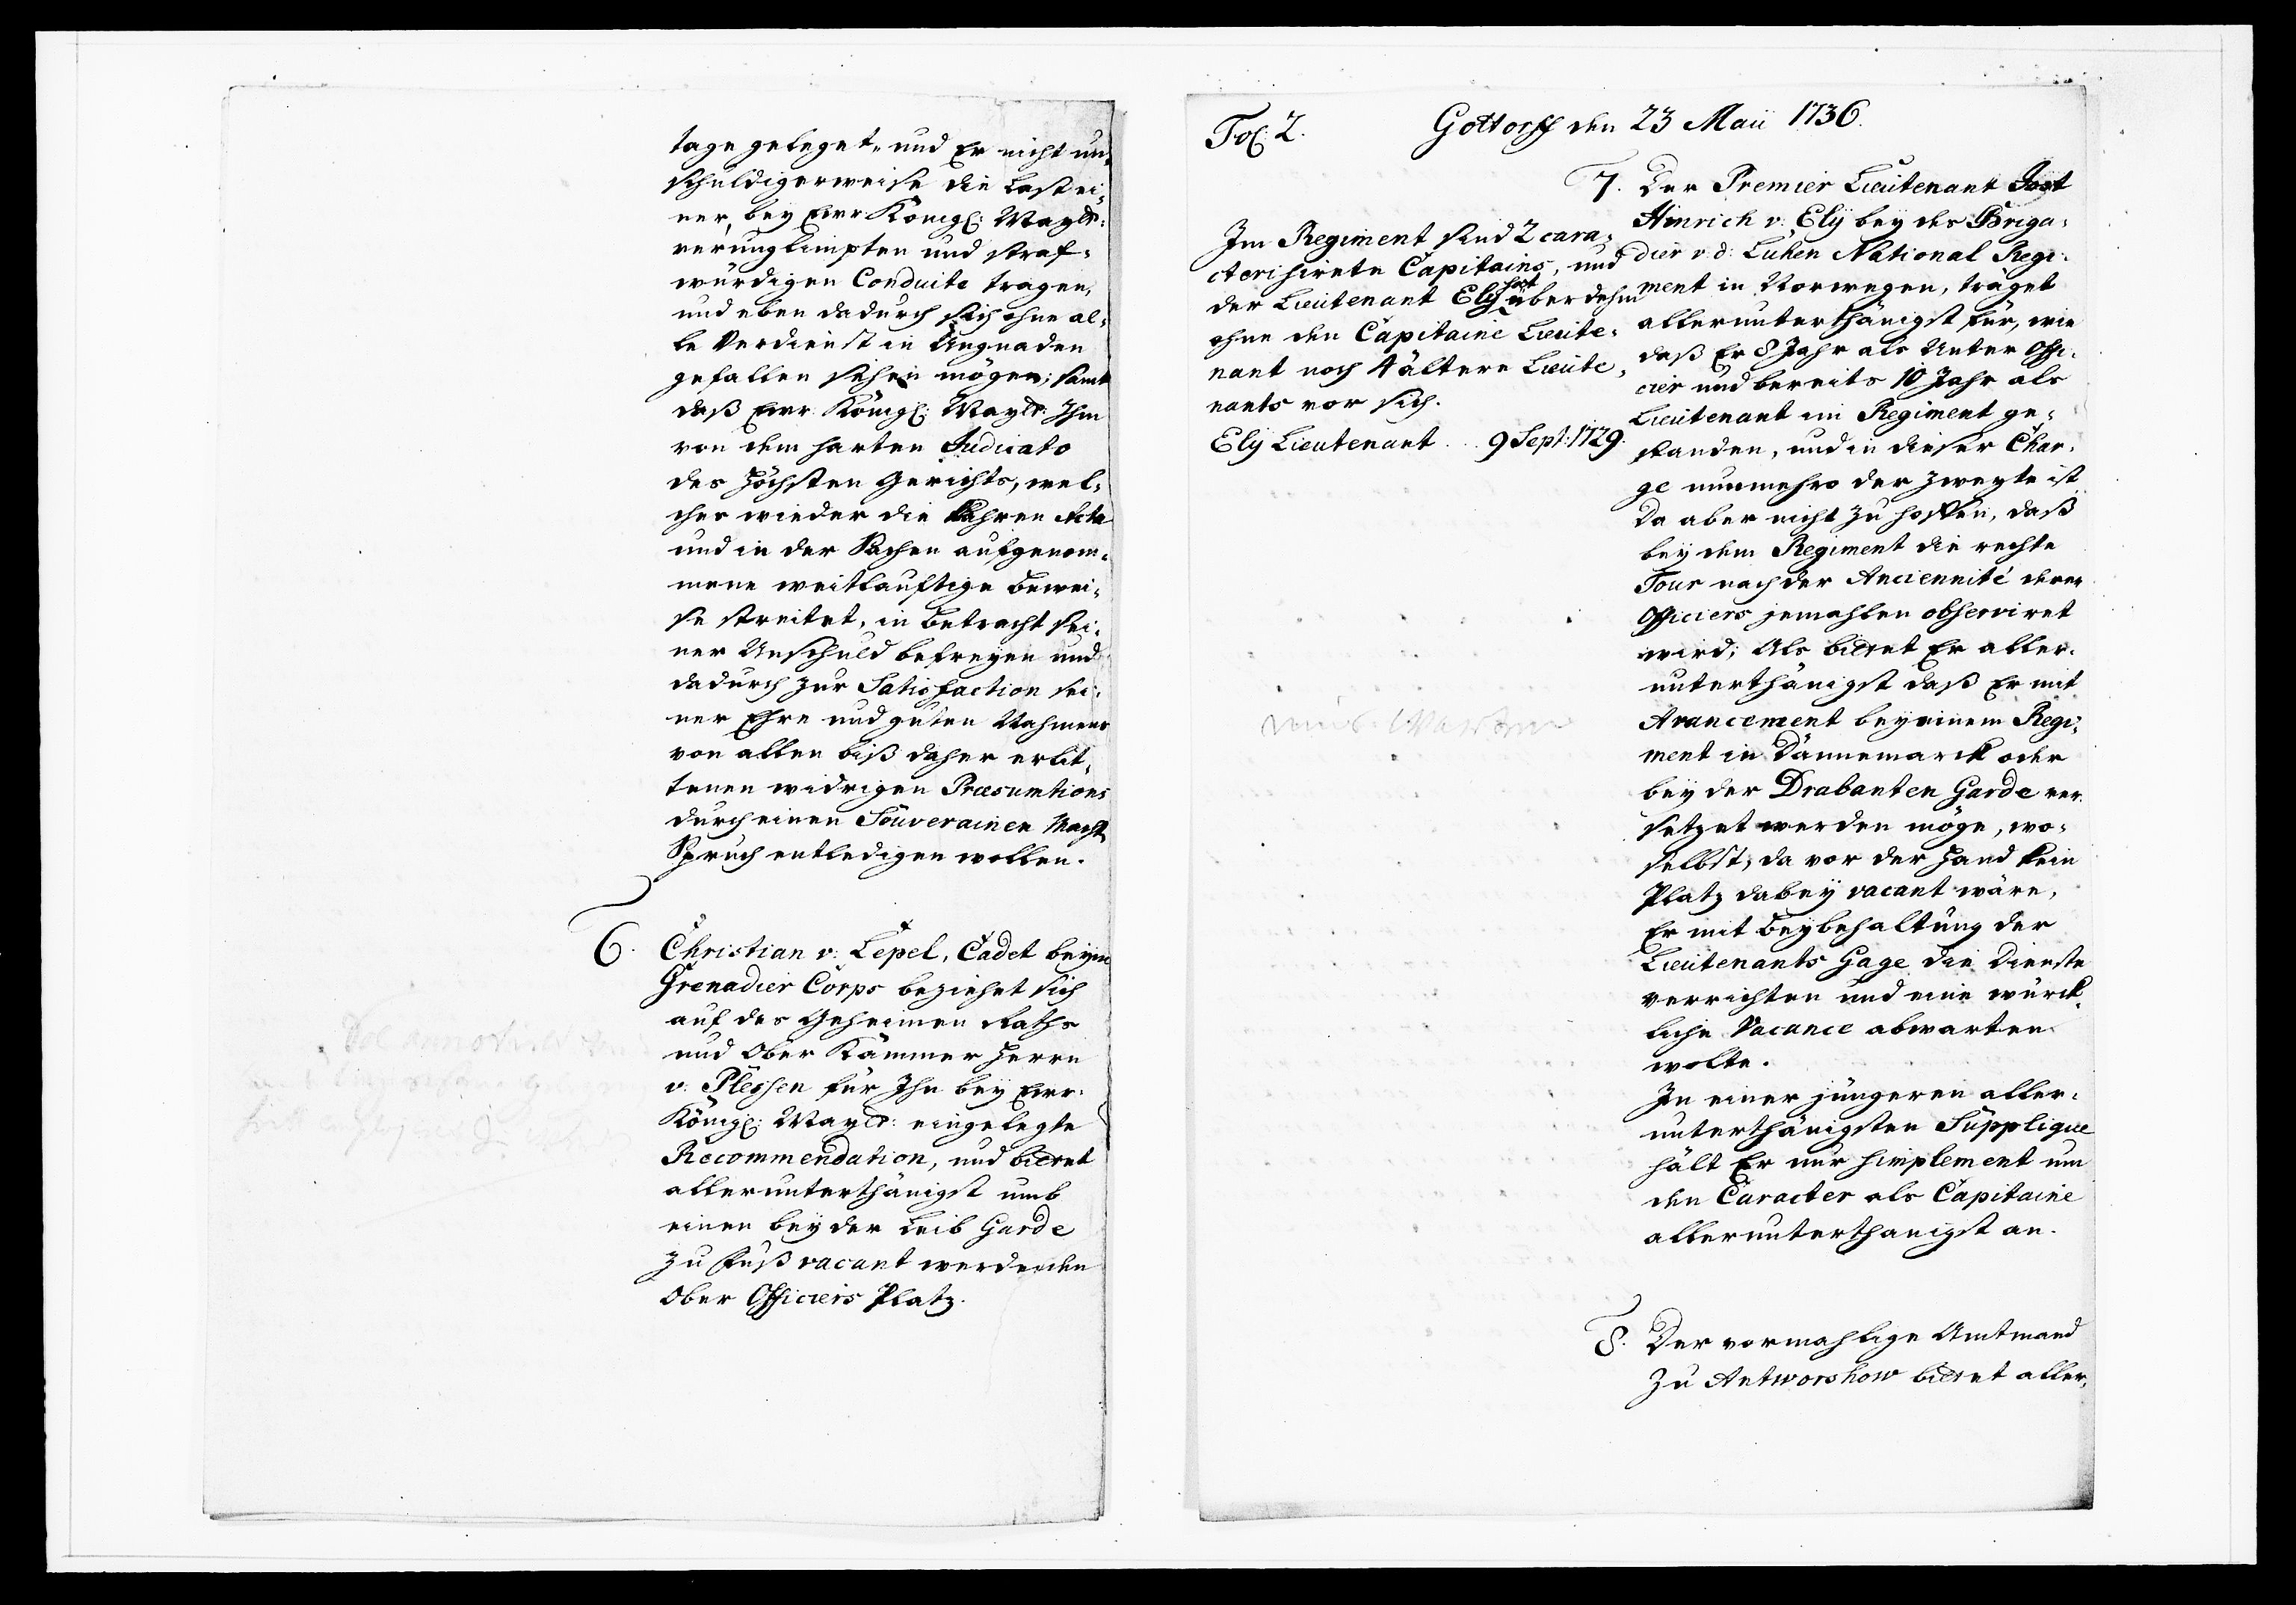 tage geleget, und Er nicht un-
schuldigerweise die Last ei-
ner, bey Ewr: Königl: Maytt:
verunglimpten und straf-
würdigen Conduite tragen,
und eben dadurch sich ohne al-
le Verdienst in Ungnaden
gefallen sehen mögen; samt
daß Ewr: Königl: Maytt: Ihm
von dem harten Judicato
des Höchsten Gerichts, wel-
ches wieder die klahren Acta
und in der Sachen aufgenom-
mene weitläuftige Bewei-
se streitet, in Betracht sei-
ner Unschuld befreyen und
dadurch zur Satisfaction sei-
ner Ehre und guten Nahmens
von allen biß daher erlit-
tenen widrigen Præsumtions
durch einen Souverainen Macht
Spruch entledigen wollen.
6. Christian v: Lepel, Cadet beym
Grenadier Corps beziehet sich
auf des Geheimen Raths
und Ober Kammer Herrn
v: Plessen für Ihn bey Ewr:
Königl: Maytt: eingelegte
Recommendation, und bittet
allerunterthänigst umb
einen bey der Leib Garde
zu Fuß vacant werdenden
Ober Officiers Platz.
Fol: 2. Gottorff den 23 Maii 1736.
Im Regiment sind 2 cara-
cterisirete Capitains, und
der Lieutenant Ely hat über dehm
ohne den Capitaine Lieute-
nant noch 4 ältere Lieute-
nants vor sich.
Ely Lieutenant . . 9 Sept: 1729.
7. Der Premier Lieutenant Jost
Hinrich v: Ely bey des Briga-
dier v: d: Lühen National Regi-
ment in Norwegen, träget
allerunterthänigst für, wie
daß Er 8 Jahr als Unter Offi-
cier und bereits 10 Jahr als
Lieutenant im Regiment ge-
standen, und in dieser Char-
ge nunmehro der zweyte ist
Da aber nicht zu hoffen, daß
bey dem Regiment die rechte
Tour nach der Anciennité derer
Officiers jemahlen observiret
wird; Als bittet Er aller-
unterthänigst daß Er mit
Avancement bey einem Regi-
ment in Dännemarck oder
bey der Drabanten Garde ver-
setzet werden möge, wo-
selbst, da vor der Hand kein
Platz dabey vacant wäre,
Er mit Beybehaltung der
Lieutenants Gage die Dienste
verrichten und eine würck-
liche Vacance abwarten
wolte.
In einer jüngeren aller-
unterthänigsten Supplique
hält Er nur simplement um
den Caracter als Capitaine
allerunterthänigst an.
8. Der vormahlige Amtmand
zu Antworskow bittet aller-